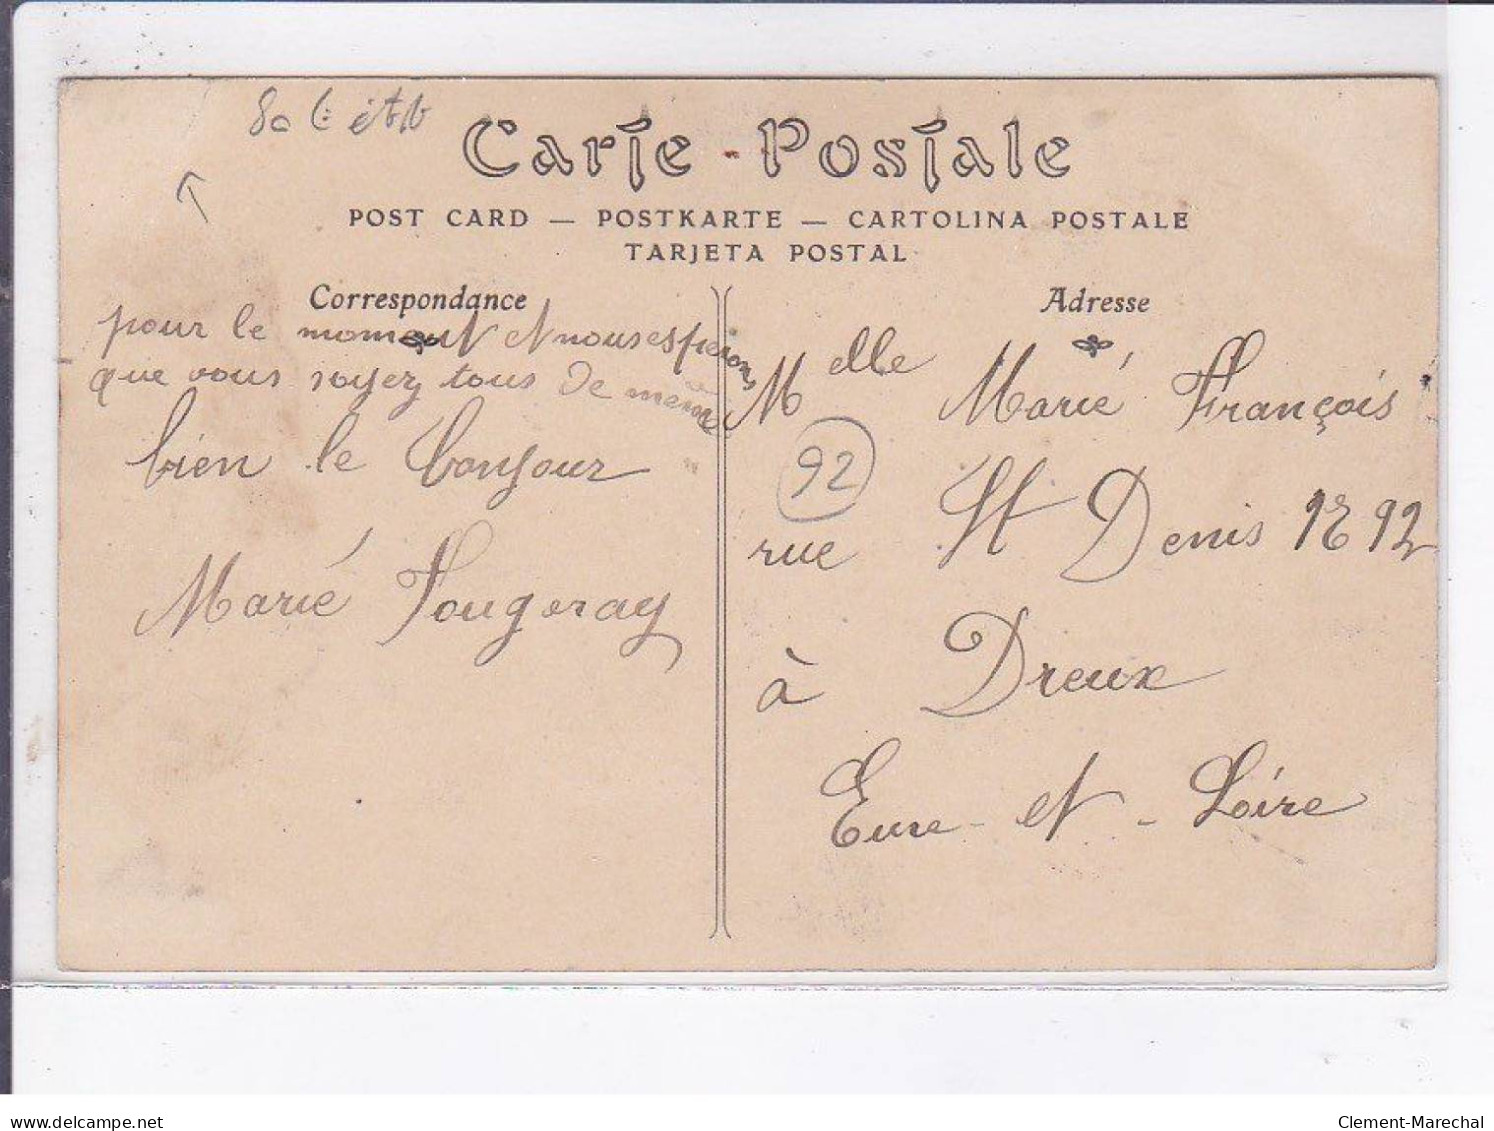 Carte Postale
POST CARD — POSTKARTE — CARTOLINA POSTALE
TARJETA POSTAL
Correspondance
pour le moment et nous espérons
que vous soyez tous de même
bien le bonjour
Marie Fougeray
Adresse
Melle Marie François
92
rue St Denis 92
à Dreux
Eure-et-Loire
delcampe.net
Clement-Marechal